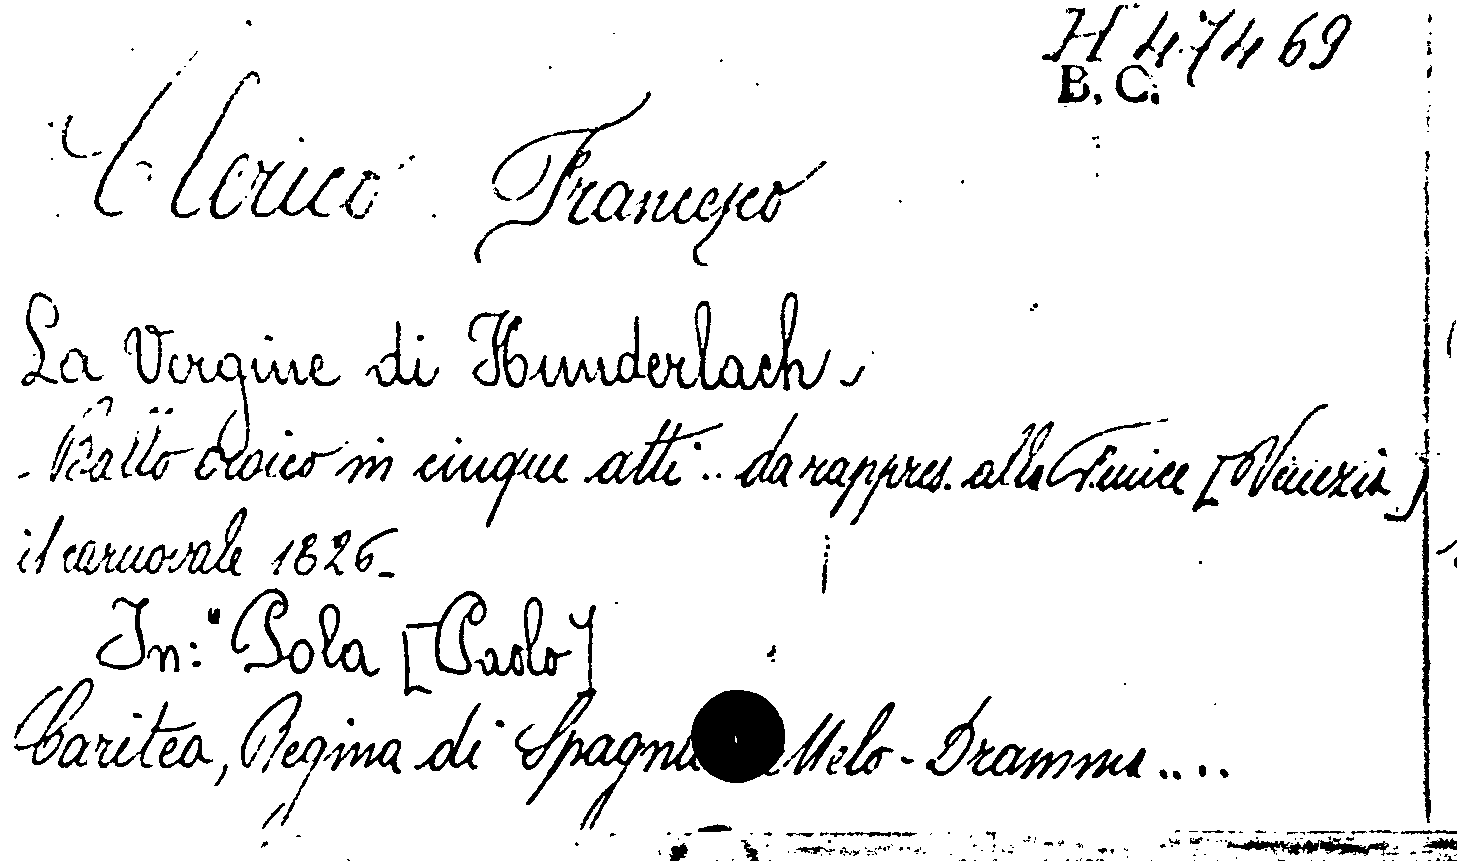 H 47469
B. C.
Clerico Francesco
La Vergine di Hunderlach.
Ballo eroico in cinque atti .. da rappres. alla Fenice [Venezia]
il carnovale 1826-
In: "Pola [Paolo]
Caritea, Regina di Spagna Melo-Dramma....